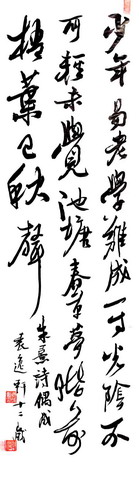 少年易老學難成一寸光陰不
可輕未覺池塘春草夢階前
梧葉已秋聲
朱熹詩偶成
袁逸軒十二歲